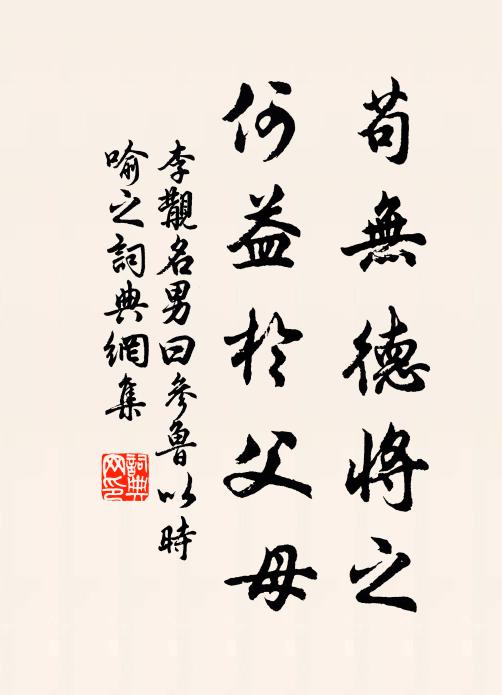 苟無德將之
何益於父母
李觀名男曰參魯以時
喻之詞典網集
詞典
网印